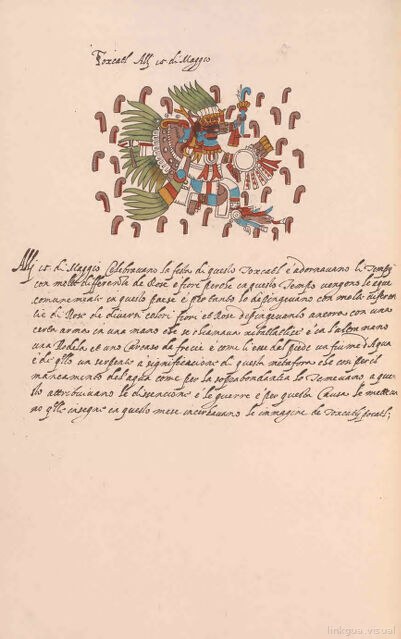 Toxcatl Alli 15 di Maggio
Alli 15 di Maggio Celebravano la festa di questo Toxcatl e adornavano li Tempij
con molta differentia de Rose e fiori perche in questo Tempo vengono le aque
comunemente in questo paese e per tanto lo depingevano con molta differen
tie di Rose de diversi colori fiori et Rose depingevanlo ancora con una
certa arma in una mano che si chiamava e ca l'altra mano
una Rodela et uno Carcase da frecie e come li esce dal piede un fiume d'Aqua
e de qllo un serpente a significatione di questa metafora che cosi per il
mancamento del'aqua come per la soprabondanza lo Temevano a que
sto attribuivano le dissencione e le guerre e per questa Causa le mettea
no qlle insegne in questo mese incensavano le immagine de
linkgua.visual